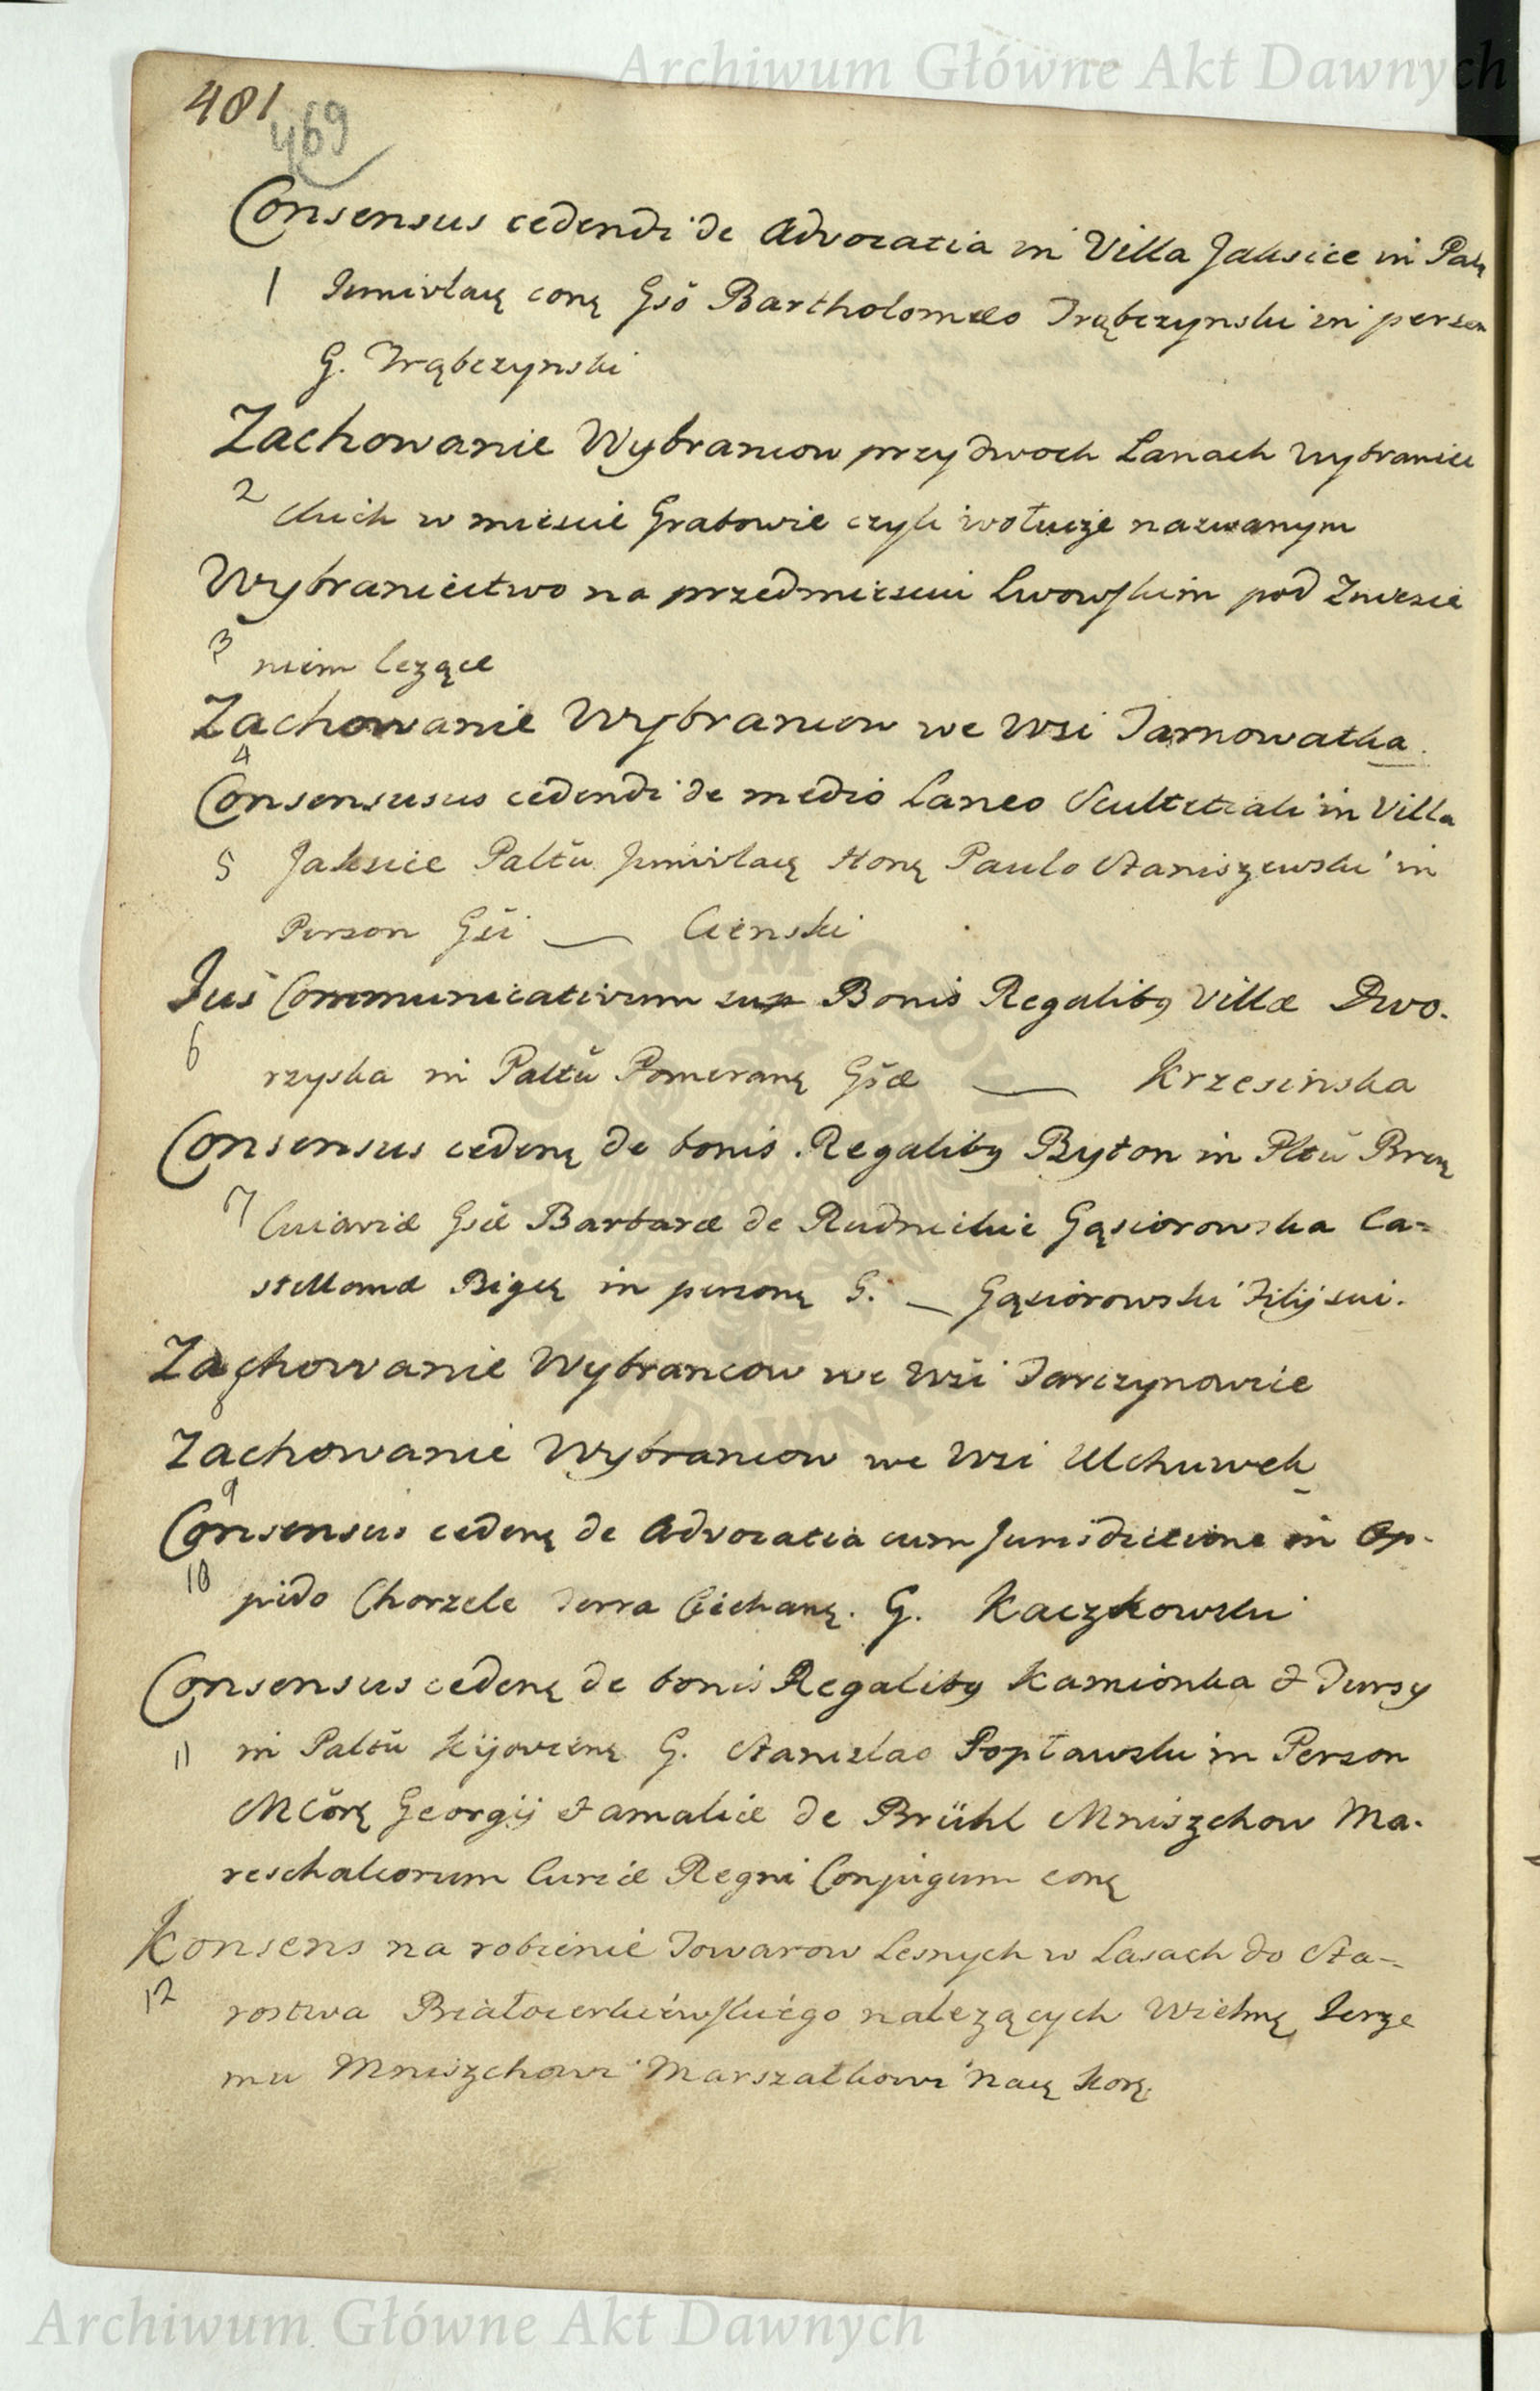 Archiwum Główne Akt Dawnych
481
469
Consensus cedendi de Advocatia in Villa Jaksice in Palą
1 Junivlaię coną Gsō Bartholomæo Trąbczynski in person
G. Trąbczynski
Zachowanie Wybrancow przy dwoch Lanach wybraniec
2 ckich w miescie Grabowie czyli nazwanym
Wybraniectwo na przedmiesciu Lwowskim pod Zniesie
3 niem lezące
Zachowanie Wybrancow we Wsi Tarnowatka.
4
Consensusus cedendi de medio Laneo Scultetiali in Villa
5 Jaksice Paltū Junivlaię Honą Paulo Staniszewski in
Person Gsi — Cienski
Jus Communicativum sup Bonis Regaliby Villæ Dwo.
6 rzyska in Paltū Pomeraną Gsæ — Krzesinska
Consensus cedeną de bonis Regaliby Byton in Pltū Breą
7 Cuiaviæ Gsæ Barbaræ de Rudnickie Gąsiorowska Ca=
stellanæ Bigeą in personą G. — Gąsiorowski Filij sui.
Zachowanie Wybrancow we Wsi Tarczynowie
8
Zachowanie Wybrancow we Wsi Uchuwek
9
Consensus cedeną de Advocatia cum Jurisdictione in Op-
10 pido Chorzele Terra Ciechaną. G. Kaczkowski
Consensus cedeną de bonis Regaliby Kamionka & Tursy
11 in Paltū Kijovieną G. Stanislao Popławski in Person
Mčorą Georgij & Amaliæ de Brühl Mniszchow Ma.
reschalcorum Curiæ Regni Conjugum coną
Konsens na robienie Towarow Lesnych w Lasach do Sta-
12 rostwa Białocerkiewskiego nalezących Wielmą Jerze
mu Mniszchowi Marszałkowi Naią Korą.
ARCHIWUM GŁÓWNE AKT DAWNYCH
Archiwum Główne Akt Dawnych